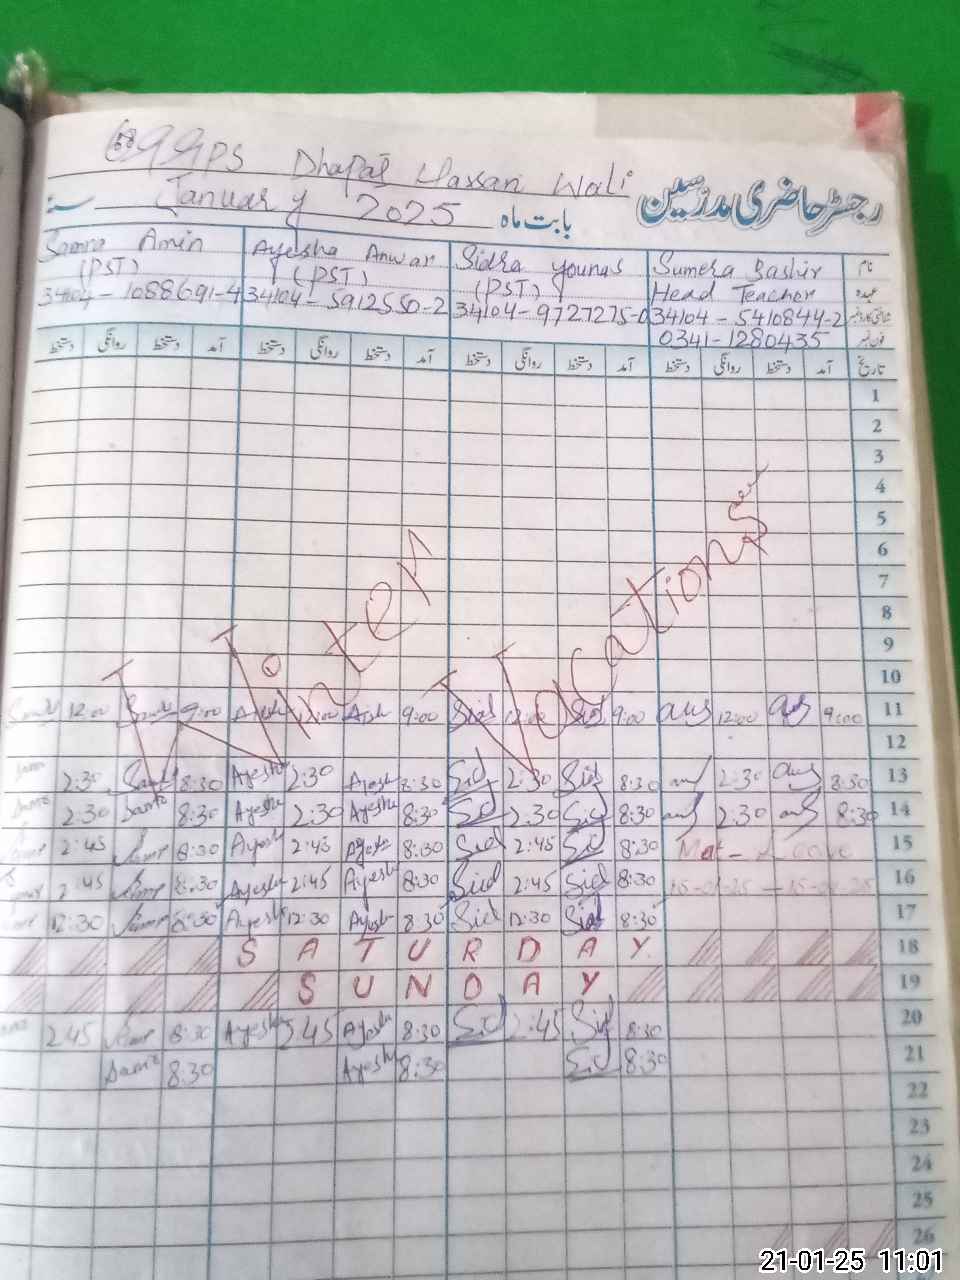 GGPS Dhapai Hassan Wali
رجسٹر حاضری مدرسین
بابت ماہ January 2025 سنہ
Samra Amin Ayesha Anwar Sidra younas Sumera Bashir نام
(PST) (PST) (PST) Head Teacher عہدہ
34104-1088691-4 34104-5912550-2 34104-9727275-0 34104-5410844-2
0341-1280435
دستخط روانگی دستخط آمد دستخط روانگی دستخط آمد دستخط روانگی دستخط آمد دستخط روانگی دستخط آمد تاریخ
1
2
3
4
5
6
7
8
9
10
Winter Vacations
12:00 9:00 Ayesh 12:00 Ayesh 9:00 Sid 12:00 Sid 9:00 12:00 9:00 11
12
2:30 8:30 Ayesha 2:30 Ayesh 8:30 Sid 2:30 Sid 8:30 2:30 8:30 13
2:30 8:30 Ayesha 2:30 Ayesha 8:30 Sid 2:30 Sid 8:30 2:30 8:30 14
2:45 8:30 Ayesh 2:45 Ayesh 8:30 Sid 2:45 Sid 8:30 Mat- Leave 15
2:45 8:30 Ayesha 2:45 Ayesh 8:30 Sid 2:45 Sid 8:30 16
12:30 8:30 Ayesh 12:30 Ayesh 8:30 Sid 12:30 Sid 8:30 17
S A T U R D A Y 18
S U N D A Y 19
2:45 8:30 Ayesha 2:45 Ayesha 8:30 Sid 2:45 Sid 8:30 20
8:30 Ayesha 8:30 Sid 8:30 21
22
23
24
25
26
21-01-25 11:01